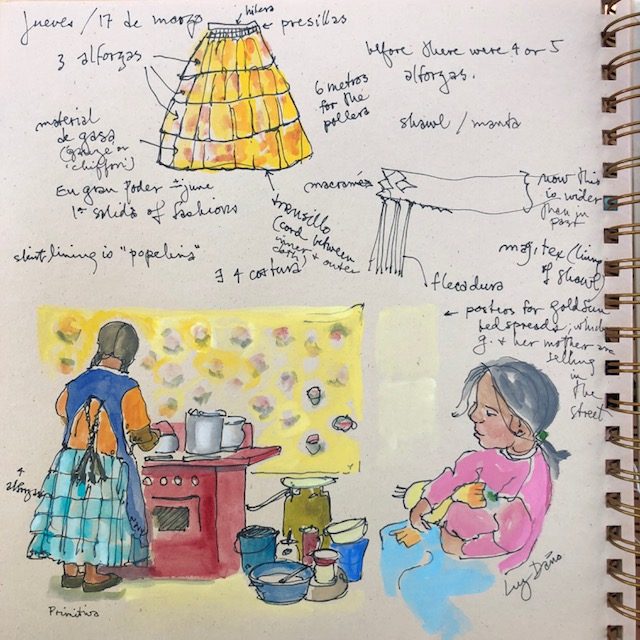 jueves / 17 de marzo
hilera
presillas
3 alforzas
before there were 4 or 5
alforzas.
6 metros
for the
pollera
material
de gasa
(gauze or
'chiffon')
shawl / manta
En gran Poder = june
1ª salida of fashions
macramé
now this
is wider
than in
past
(cord between
inner + outer
skirt lining is "popelina"
4 costura
magitex (lining
of shawl)
flecadura
posters for golden
bedspreads, which
g. + her mother are
selling
in
the
street
4
alforzas
Primitiva